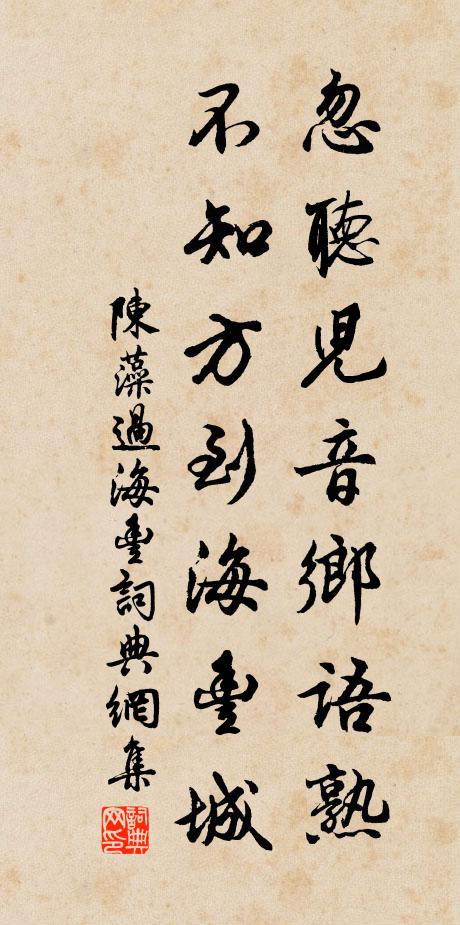 忽聽兒音鄉語熟
不知方到海豐城
陳藻過海豐詞典網集
詞典网印